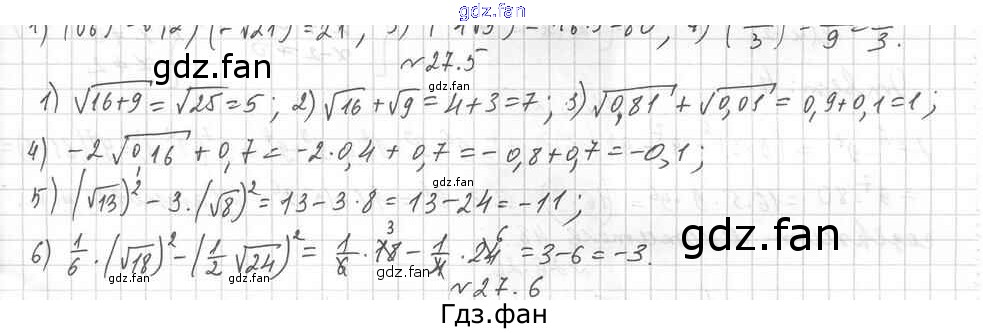 gdz.fan
№27.5
gdz.fan
1) √16+9 = √25 = 5; 2) √16 + √9 = 4+3 = 7; 3) √0,81 + √0,01 = 0,9+0,1 = 1;
gdz.fan
4) -2√0,16 + 0,7 = -2·0,4 + 0,7 = -0,8+0,7 = -0,1;
gdz.fan
5) (√13)² - 3·(√8)² = 13-3·8 = 13-24 = -11;
gdz.fan
6) 1/6·(√18)² - (1/2 √24)² = 1/6·18 3 - 1/4·24 6 = 3-6 = -3.
gdz.fan
№27.6
Гдз.фан